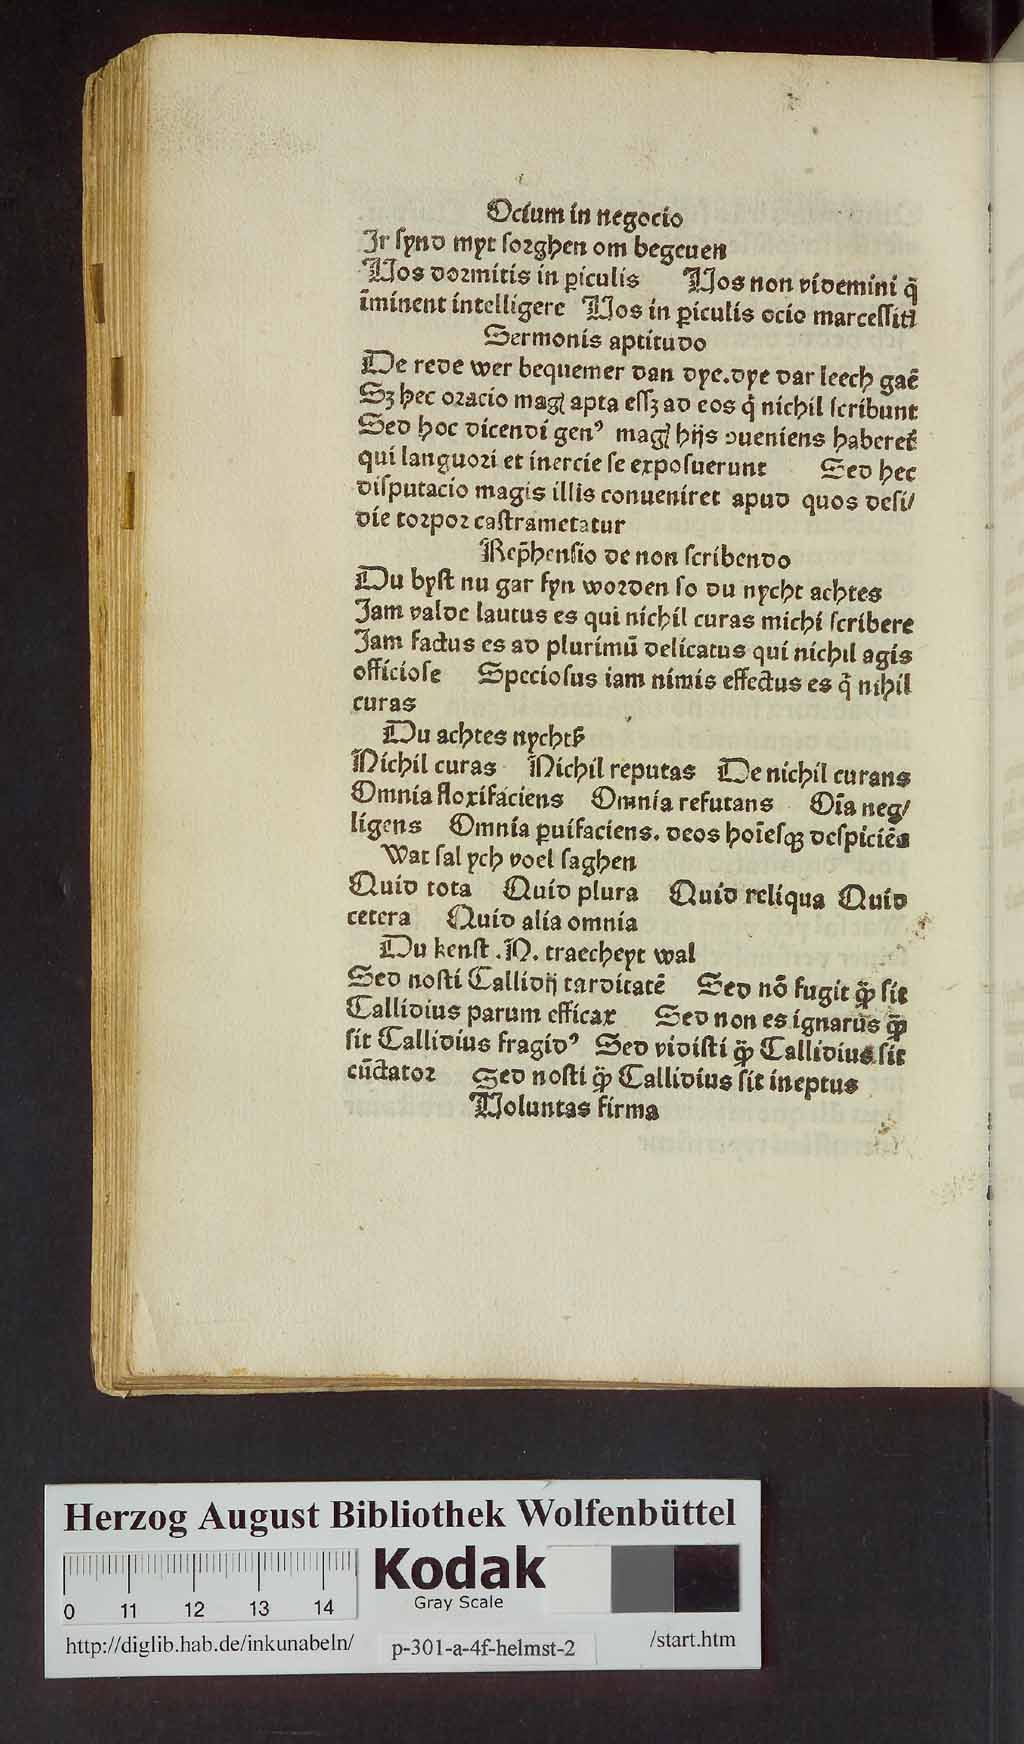 Ocium in negocio
Ir synd myt sorghen om begeuen
Uos dormitis in ꝑiculis Uos non videmini q̄
īminent intelligere Uos in ꝑiculis ocio marcessiti
Sermonis aptitudo
De rede wer bequemer dan dye.dye dar leech gaē
Sꝫ hec oracio magꝭ apta essꝫ ad eos q̄ nichil scribunt
Sed hoc dicendi genꝰ magꝭ hijs ↄueniens haberet᷑
qui languori et inercie se exposuerunt Sed hec
disputacio magis illis conueniret apud quos desi/
die torpor castrametatur
Rep̄hensio de non scribendo
Du byst nu gar fyn worden so du nycht achtes
Jam valde lautus es qui nichil curas michi scribere
Jam factus es ad plurimū delicatus qui nichil agis
officiose Speciosus iam nimis effectus es q̄ nihil
curas
Du achtes nychtꝭ
Nichil curas Nichil reputas De nichil curans
Omnia floxifaciens Omnia refutans Oīa neg/
ligens Omnia ꝑuifaciens. deos hoīesqꝫ despiciēs
Wat sal ych voel saghen
Quid tota Quid plura Quid reliqua Quid
cetera Quid alia omnia
Du kenst .N. traecheyt wal
Sed nosti Callidij tarditatē Sed nō fugit qꝫ̄ sit
Callidius parum efficax Sed non es ignarus qꝫ̄
sit Callidius fragidꝰ Sed vidisti qꝫ̄ Callidius sit
cūctator Sed nosti qꝫ̄ Callidius sit ineptus
Uoluntas firma
Herzog August Bibliothek Wolfenbüttel
Kodak
Gray Scale
0 11 12 13 14
http://diglib.hab.de/inkunabeln/ p-301-a-4f-helmst-2 /start.htm